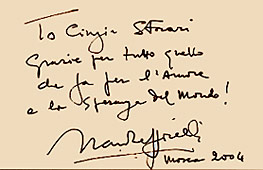 To Cinzia Storari
Grazie per tutto quello
che fa per l'Amore
e la Speranza del Mondo!
Mosca 2004